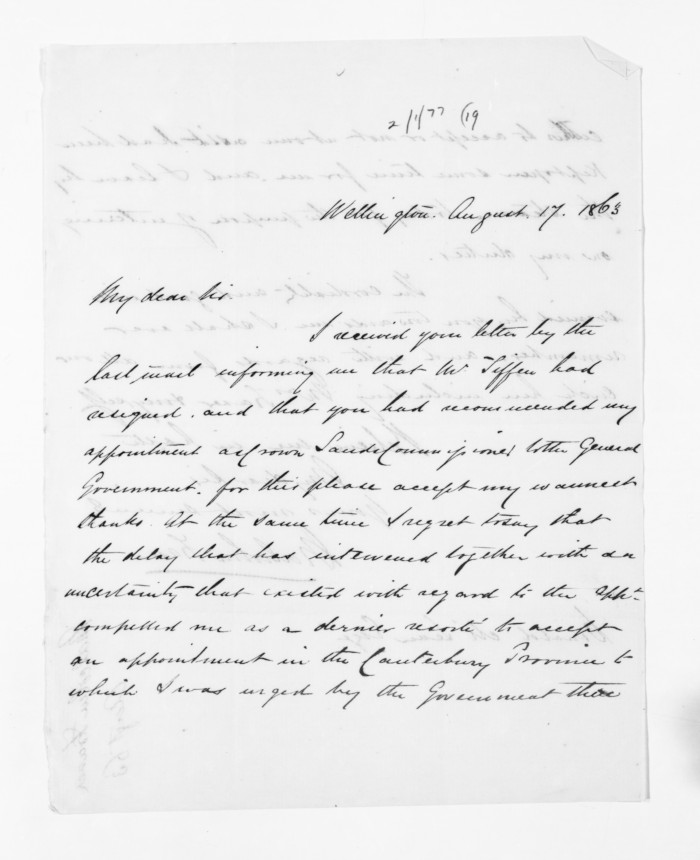 2/1/77 (19
Wellington. August 17. 1863
My dear Sir.
I received your letter by the
last mail informing me that Mr Tiffen had
resigned. and that you had recommended my
appointment as Crown Lands Commissioner to the General
Government. for this please accept my warmest
thanks. At the same time I regret to say that
the delay that has intervened together with
uncertainty that existed with regard to the appt
compelled me as a dernier resorte to accept
an appointment in the Canterbury Province to
which I was urged by the Government there